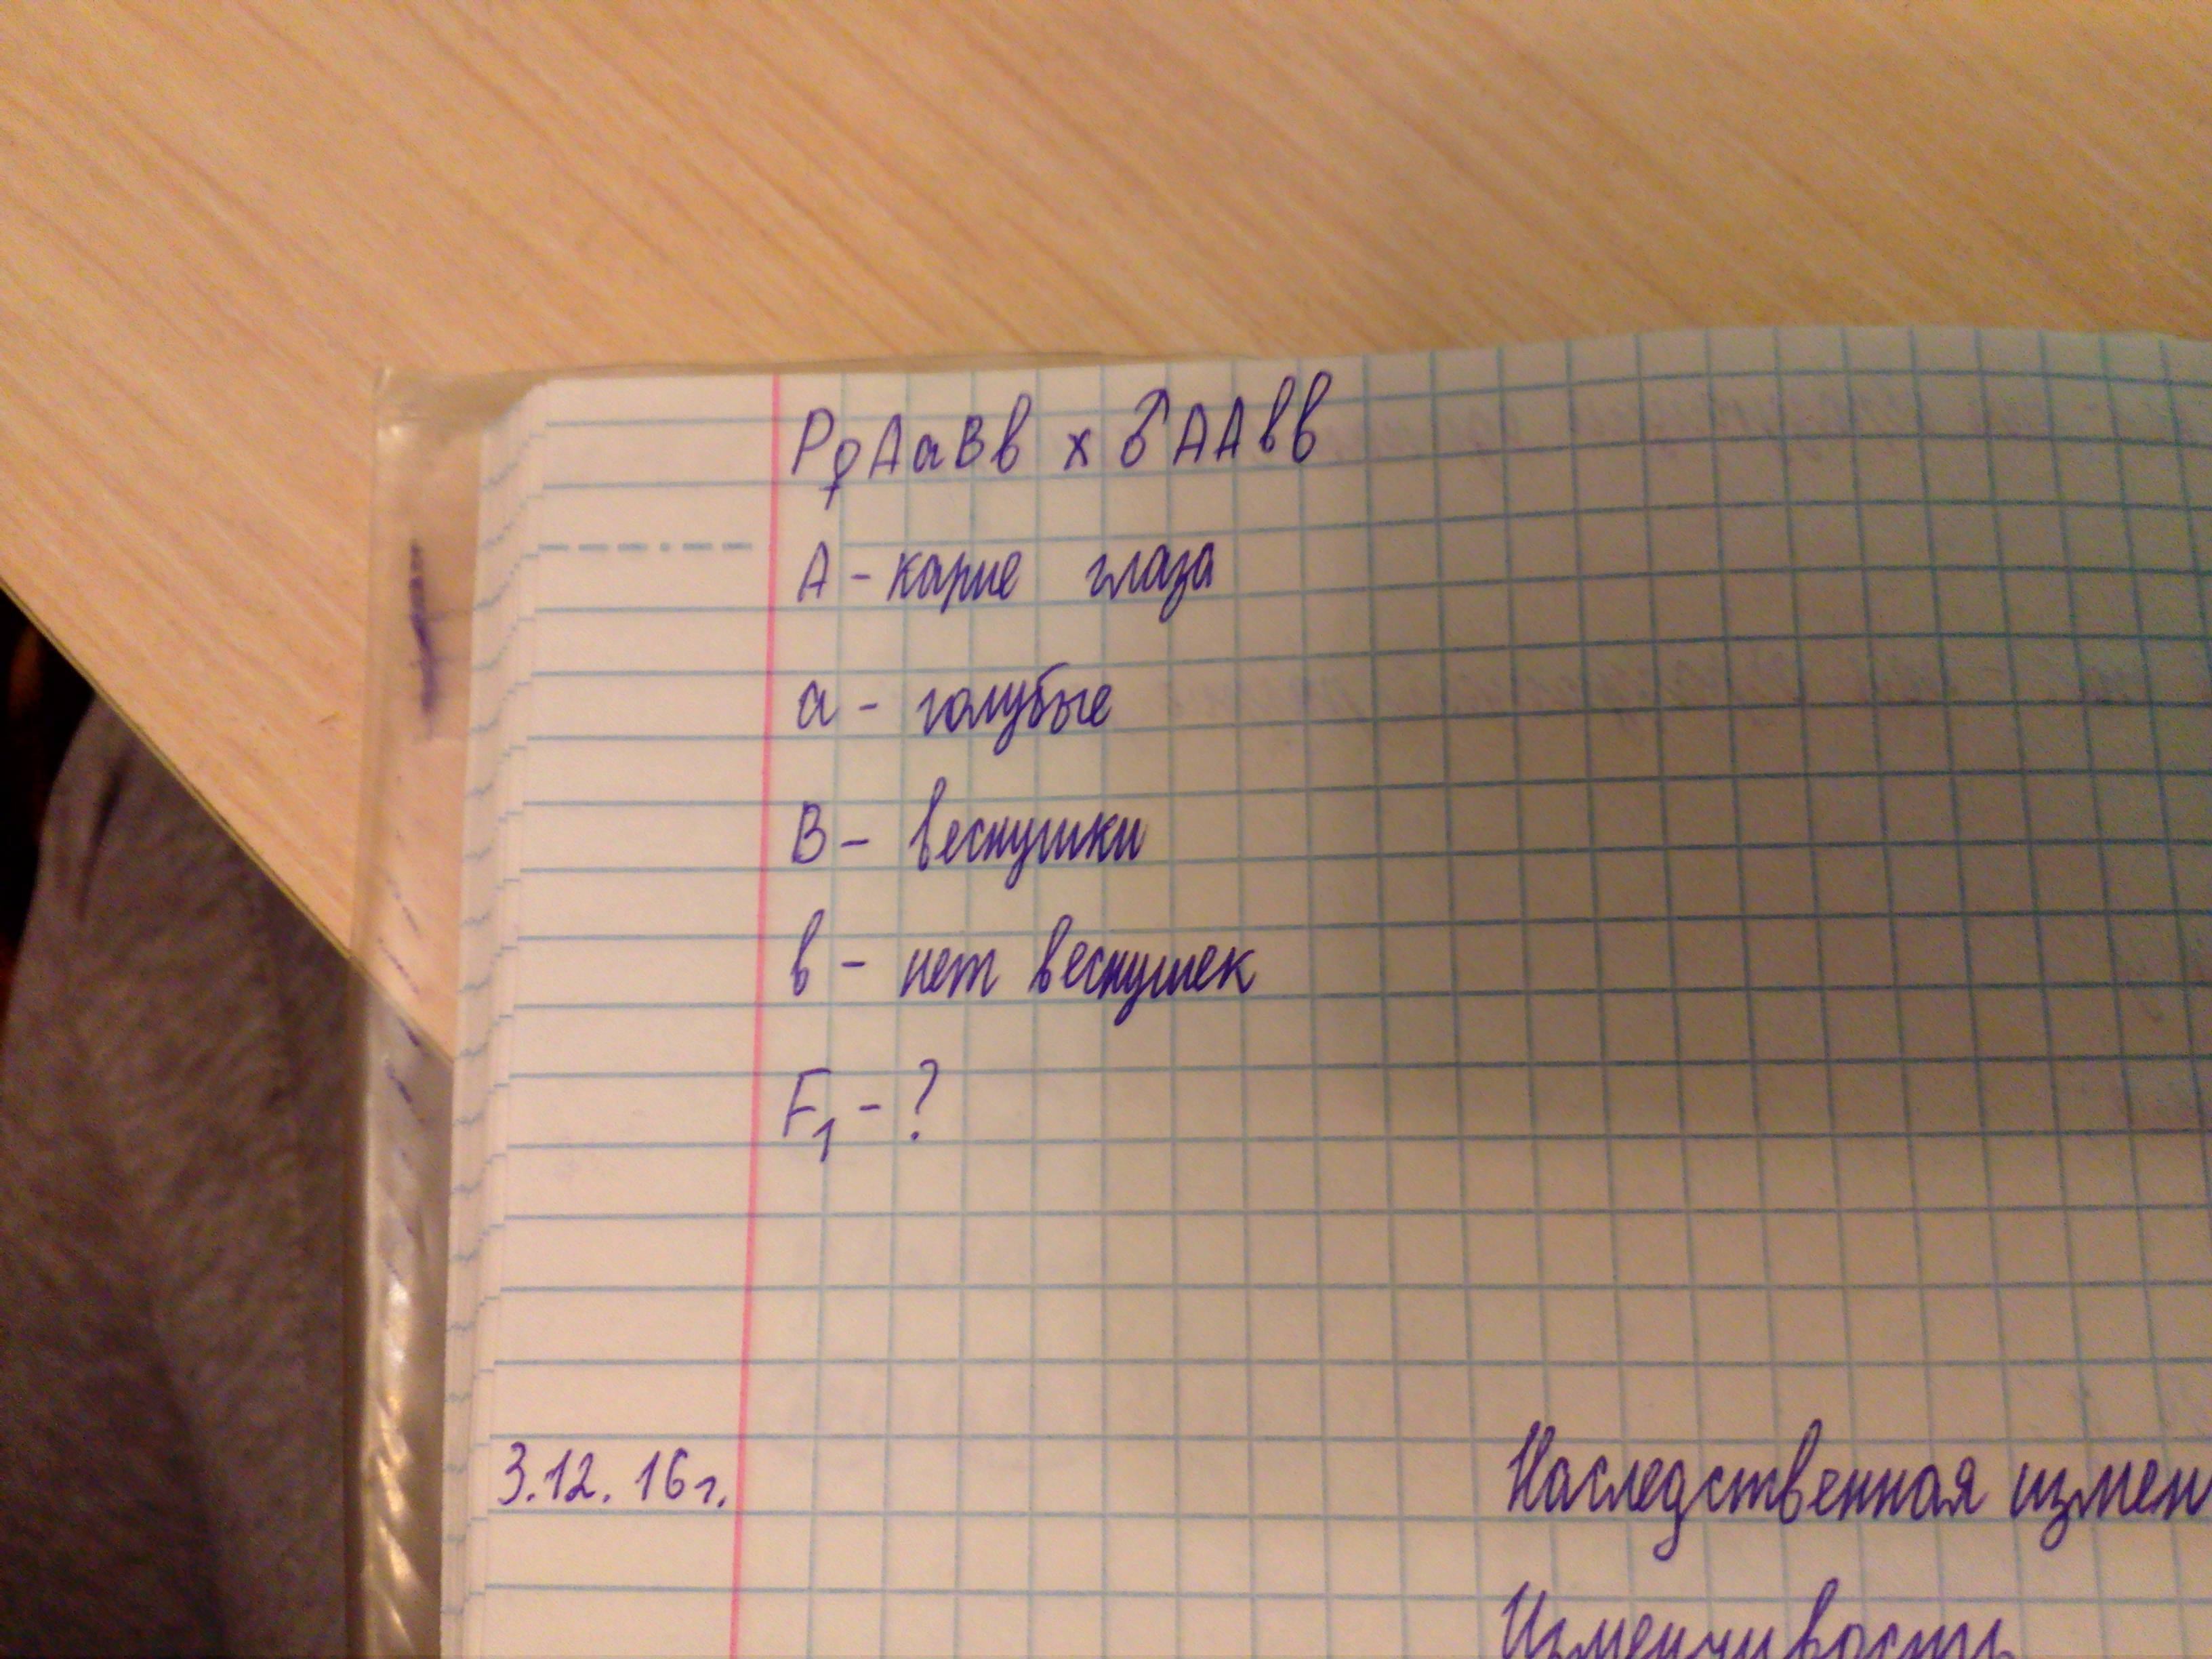 P♀АаВв х ♂ААвв
А - карие глаза
а - голубые
В - веснушки
в - нет веснушек
F₁ - ?
3.12.16г.
Наследственная измен
Изменчивость